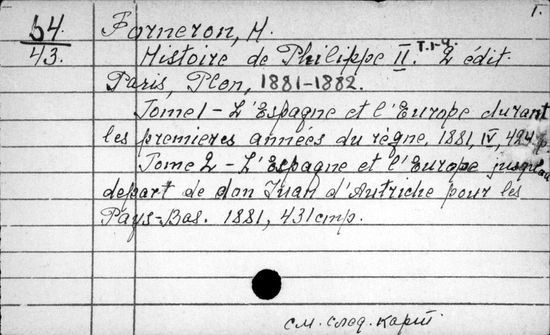 1.
54/43. Forneron, H.
Histoire de Philippe II. T. 1-4. 2 édit.
Paris, Plon, 1881-1882.
Tome 1 - L'Espagne et l'Europe durant
les premieres années du règne, 1881, IV, 424 p.
Tome 2 - L'Espagne et l'Europe jusqu'au
depart de don Juan d'Autriche pour les
Pays-Bas. 1881, 431 стр.
см. след. карт